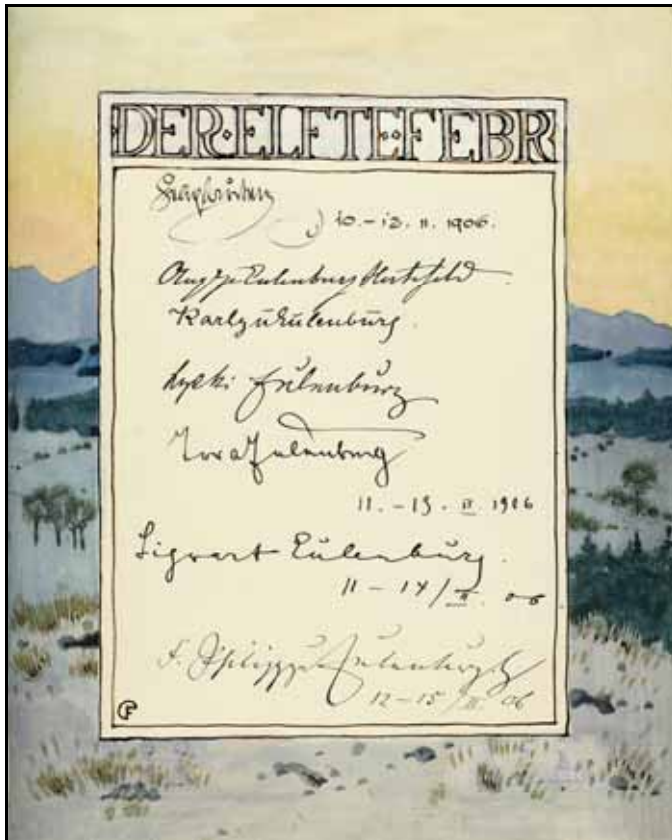 DER·ELFTE··FEBR
10.-12. II. 1906.
Eulenburg Hertefeld
Karl zu Eulenburg.
Lycki Eulenburg
Tora Eulenburg
11.-13. II 1906
Sigwart Eulenburg.
11-14/II. 06
F. Philipp zu Eulenburg H
12-15/II 06